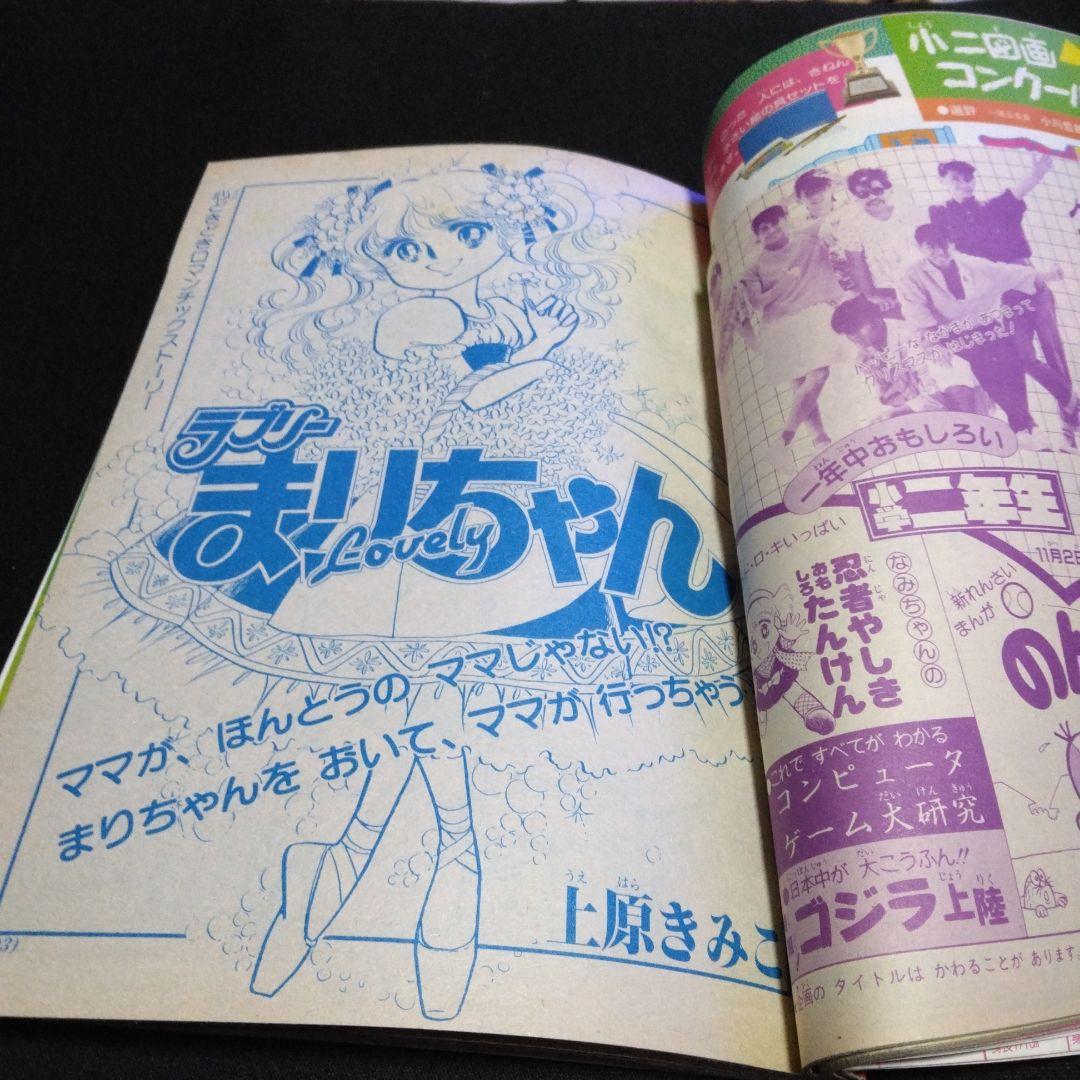 ラブリー
まりちゃん
Lovely
ママが、ほんとうの ママじゃない!?
まりちゃんを おいて、ママが 行っちゃう
うえ はら
上原きみこ
小二図画
コンクール
●選評
人には、きねん
なかまが あつまって
クリスマスが はじまった!
一年中おもしろい
小学二年生
・ロ・キいっぱい
11月2日
なみちゃんの
忍者やしき
おもしろ
たんけん
新れんさい
まんが
のん
これで すべてが わかる
コンピュータ
ゲーム大研究
日本中が 大こうふん!!
ゴジラ上陸
企画の タイトルは かわることが あります